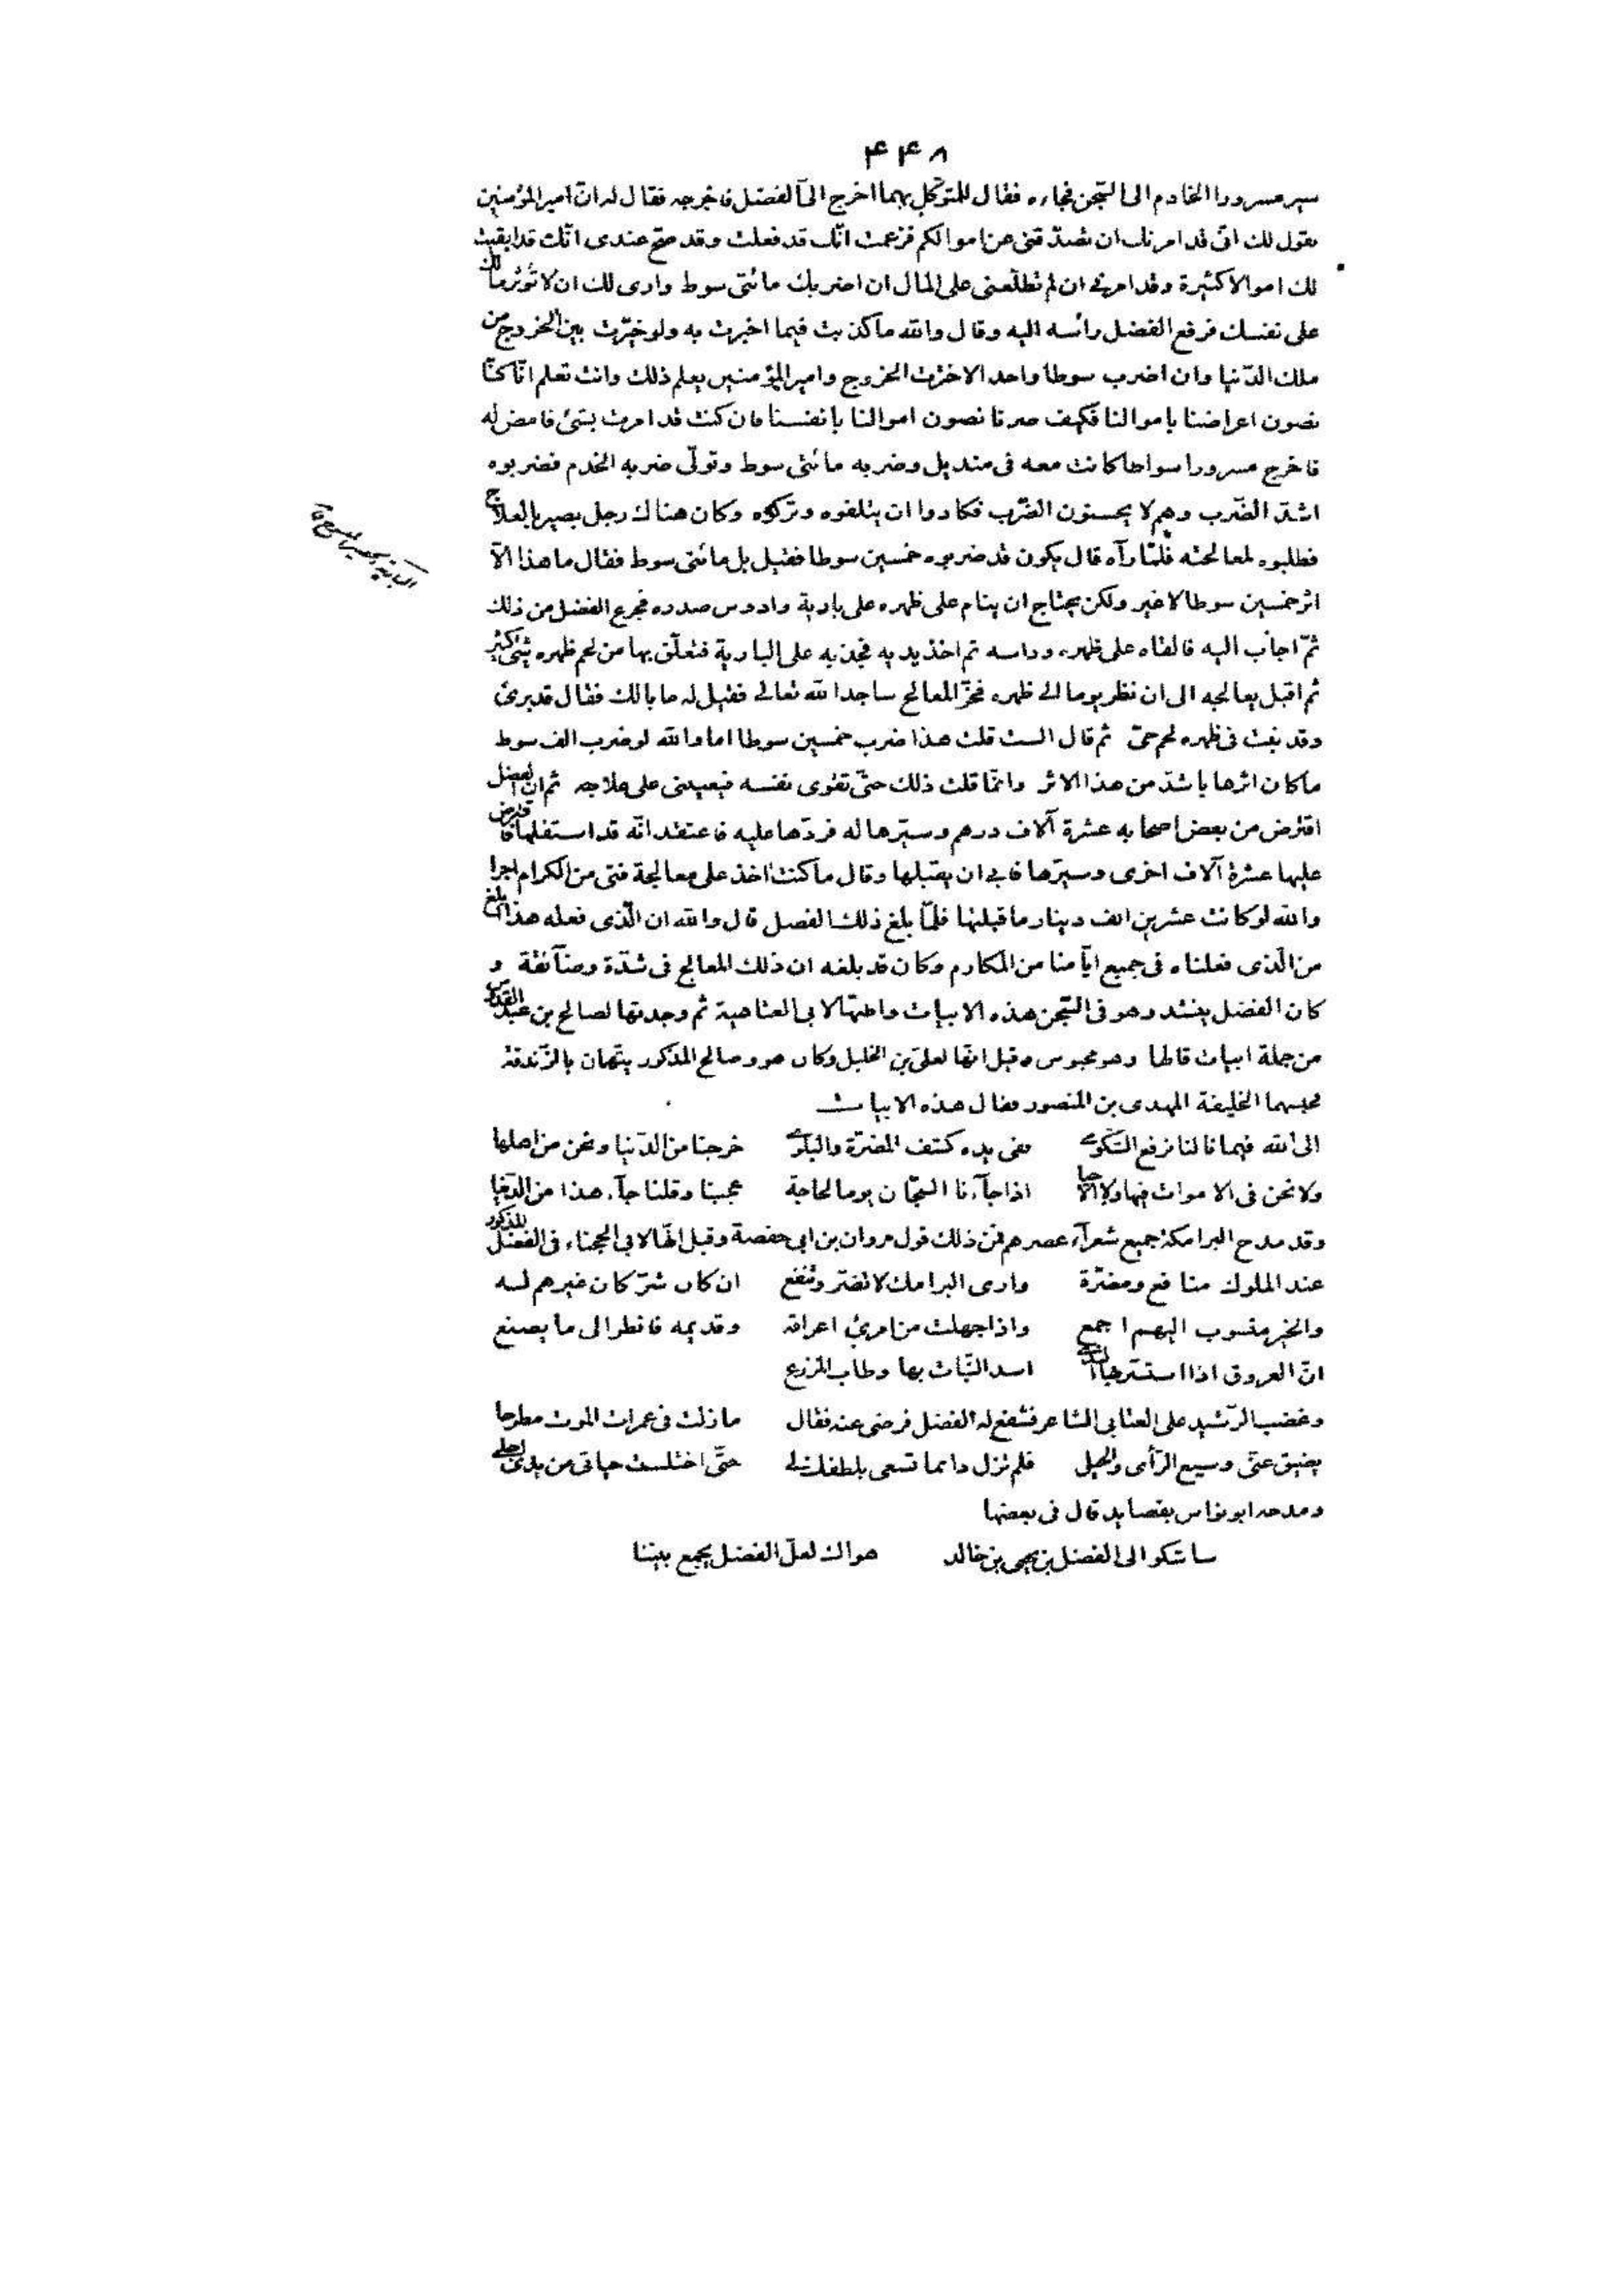 ۴۴۸
سير مسرورا الخادم الى السّجن فجاءه فقال للمتوكّل بهما اخرج الىّ الفضل فاخرجه فقال له انّ امير المؤمنين
يقول لك انّى قد امرتك ان تصدّقنى عن اموالكم فزعمت انّك قد فعلت وقد صحّ عندى انّك قد ابقيت
لك اموالا كثيرة وقد امرنى ان لم تطلعنى على المال ان اضربك مائتى سوط وارى لك ان لا تؤثر مالك
على نفسك فرفع الفضل رأسه اليه وقال والله ما كذبت فيما اخبرت به ولو خيّرت بين الخروج من
ملك الدّنيا وان اضرب سوطا واحدا لاخترت الخروج وامير المؤمنين يعلم ذلك وانت تعلم انّا كنّا
نصون اعراضنا باموالنا فكيف صرنا نصون اموالنا بانفسنا فان كنت قد امرت بشئ فامض له
فاخرج مسرورا سواطا كانت معه فى منديل وضربه مائتى سوط وتولّى ضربه الخدم فضربوه
اشدّ الضّرب وهم لا يحسنون الضّرب فكادوا ان يتلفوه وتركوه وكان هناك رجل بصير بالعلاج
فطلبوه لمعالجته فلمّا رآه قال يكون قد ضربوه خمسين سوطا فقيل بل مائتى سوط فقال ما هذا الّا
اثر خمسين سوطا لا غير ولكن يحتاج ان ينام على ظهره على بارية وادوس صدره فجزع الفضل من ذلك
ثمّ اجاب اليه فالقاه على ظهره وداسه ثم اخذ يديه فجذبه على البارية فتعلّق بها من لحم ظهره شئ كثير
ثم اقبل يعالجه الى ان نظر يوما الى ظهره فخرّ المعالج ساجدا لله تعالى فقيل له ما بالك فقال قد برئ
وقد نبت فى ظهره لحم حىّ ثم قال الست قلت هذا ضرب خمسين سوطا اما والله لو ضرب الف سوط
ما كان اثرها باشدّ من هذا الاثر وانّما قلت ذلك حتّى تقوى نفسه فيعيننى على علاجه ثم ان الفضل
اقترض من بعض اصحابه عشرة آلاف درهم وسيّرها له فردّها عليه فاعتقد انّه قد استقلّها فاقترض
عليها عشرة آلاف اخرى وسيّرها فابى ان يقبلها وقال ما كنت اخذ على معالجة فتى من الكرام اجرا
والله لو كانت عشرين الف دينار ما قبلتها فلمّا بلغ ذلك الفضل قال والله ان الّذى فعله هذا ابلغ
من الّذى فعلناه فى جميع ايّامنا من المكارم وكان قد بلغه ان ذلك المعالج فى شدّة وضآئقة و
كان الفضل ينشد وهو فى السّجن هذه الابيات واظنّها لابى العتاهية ثم وجدتها لصالح بن عبد القدوس
من جملة ابيات قالها وهو محبوس وقيل انّها لعلىّ بن الخليل وكان هو وصالح المذكور يتّهمان بالزّندقة
فحبسهما الخليفة المهدى بن المنصور فقال هذه الابيات
الى الله فيما نالنا نرفع الشّكوى ففى يده كشف المضرّة والبلوى خرجنا من الدّنيا ونحن من اهلها
ولا نحن فى الاموات فيها ولا الاحيا اذا جآءنا السّجّان يوما لحاجة عجبنا وقلنا جآء هذا من الدّنيا
وقد مدح البرامكة جميع شعرآء عصرهم فمن ذلك قول مروان بن ابى حفصة وقيل انّها لابى الحجناء فى الفضل المذكور
عند الملوك منافع ومضرّة وارى البرامك لا تضرّ وتنفع ان كان شرّ كان غيرهم له
والخير منسوب اليهم اجمع واذا جهلت من امرئ اعراقه وقديمه فانظر الى ما يصنع
انّ العروق اذا استسرّ بها الندى اسد النّبات بها وطاب المزرع
وغضب الرّشيد على العتابى الشاعر فشفع له الفضل فرضى عنه فقال ما زلت فى غمرات الموت مطرحا
يضيق عنّى وسيع الرّأى والحيل فلم تزل دائما تسعى بلطفك لى حتّى اختلست حياتى من يدى اجلى
ومدحه ابو نواس بقصايد قال فى بعضها
ساشكو الى الفضل بن يحيى بن خالد هواك لعلّ الفضل يجمع بيننا